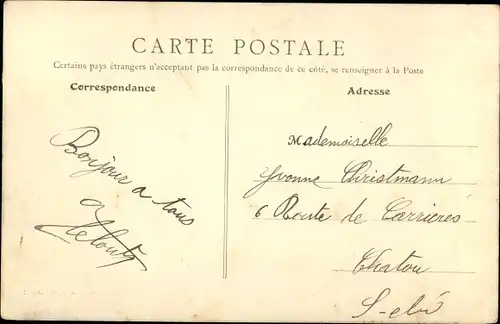 CARTE POSTALE
Certains pays étrangers n'acceptant pas la correspondance de ce côté, se renseigner à la Poste
Correspondance
Adresse
Bonjour a tous
Mademoiselle
Yvonne Christmann
6 Route de Carrières
Chatou
S-et-O